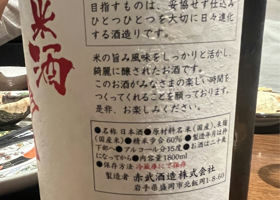 米酒
目指すものは、妥協せず仕込み
ひとつひとつを大切に日々進化
する酒造りです。
米の旨み風味をしっかりと活かし、
綺麗に醸されたお酒です。
このお酒がみなさまの楽しい時間を
つくってくれることを願っております。
是非、お楽しみください。
●名称 日本酒 ●原材料名 米(国産)、米麹
(国産米) ●精米歩合60% ●製造年月は枠
下部へ ●アルコール分15度 ●お酒は二十歳
になってから ●内容量1800ml
●保存方法 冷蔵庫にて保存
製造者 赤武酒造株式会社
岩手県盛岡市北飯岡1-8-60